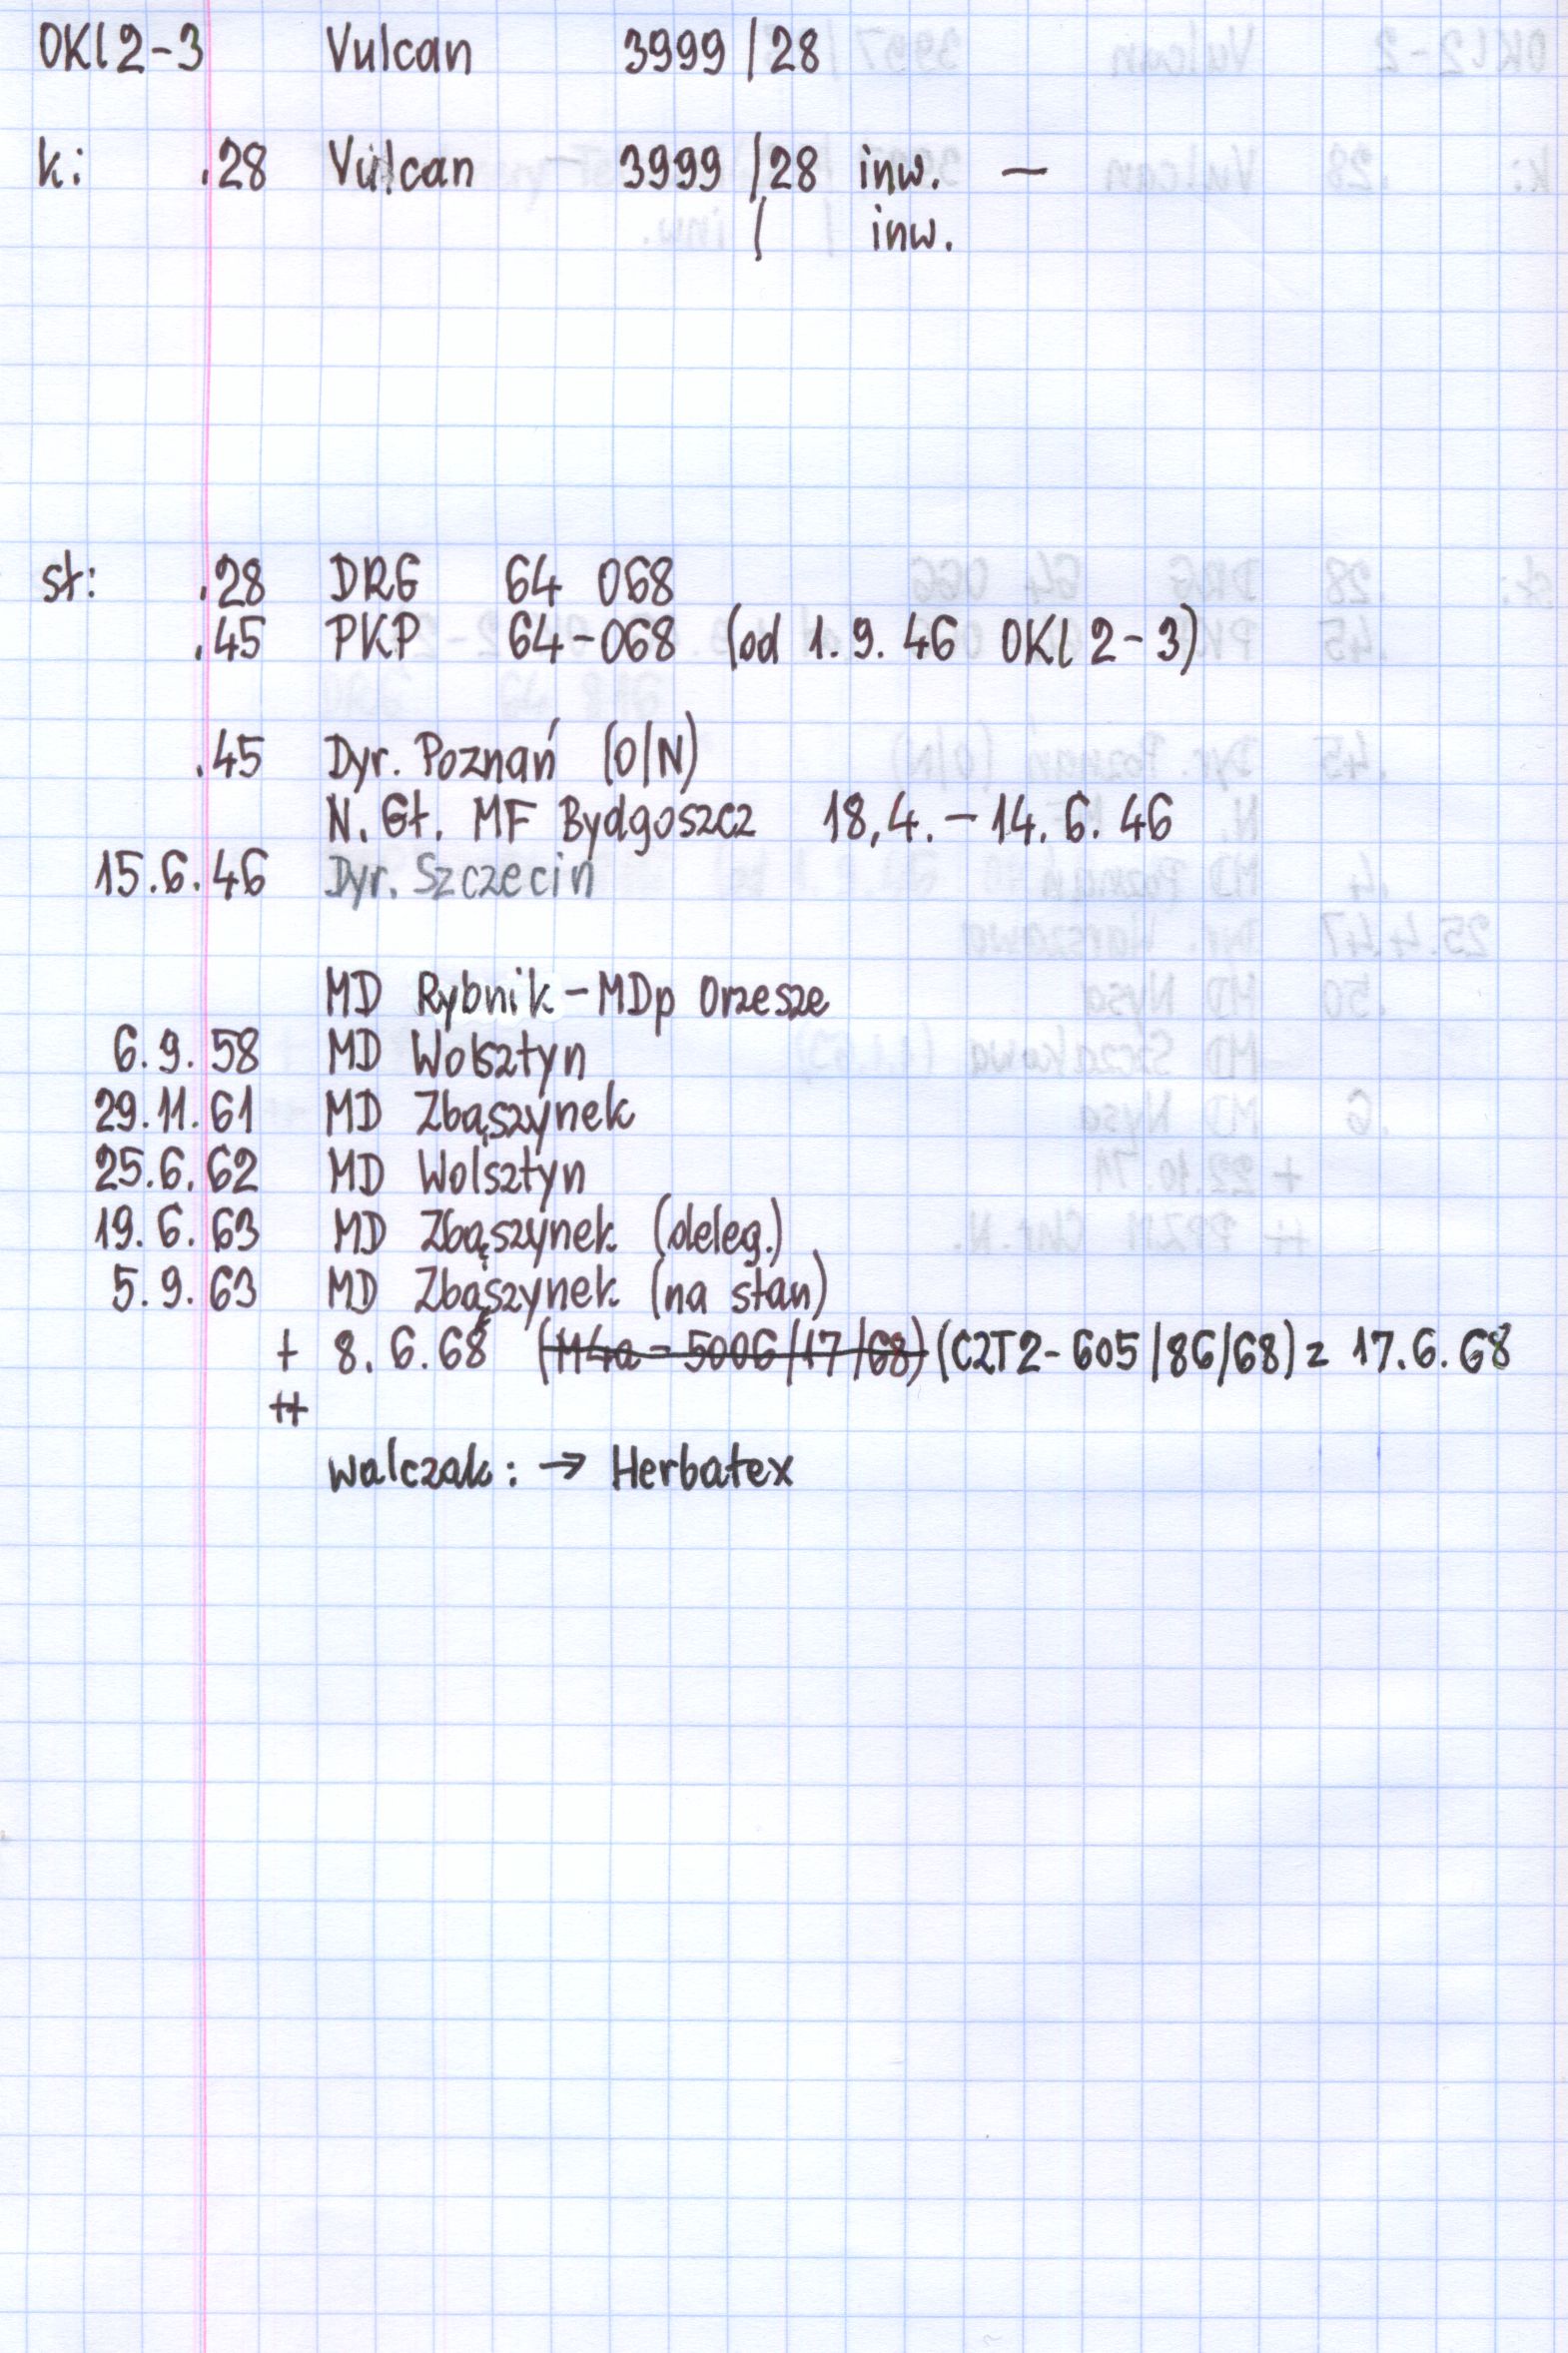 OKl 2-3 Vulcan 3999 / 28
k: .28 Vulcan 3999 / 28 inw. —
/ inw.
st: .28 DRG 64 068
.45 PKP 64-068 (od 1.9.46 OKl 2-3)
.45 Dyr. Poznań (O/N)
N. Gł. MF Bydgoszcz 18,4. - 14.6.46
15.6.46 Dyr. Szczecin
MD Rybnik - MDp Orzesze
6.9.58 MD Wolsztyn
29.11.61 MD Zbąszynek
25.6.62 MD Wolsztyn
19.6.63 MD Zbąszynek (deleg.)
5.9.63 MD Zbąszynek (na stan)
+ 8.6.68 (M4a - 5006/17/68) (C2T2-605/86/68) z 17.6.68
++
walczak: → Herbatex